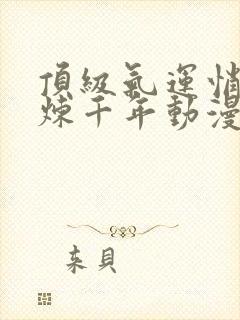 頂級氣運悄
煉千年動漫
来貝